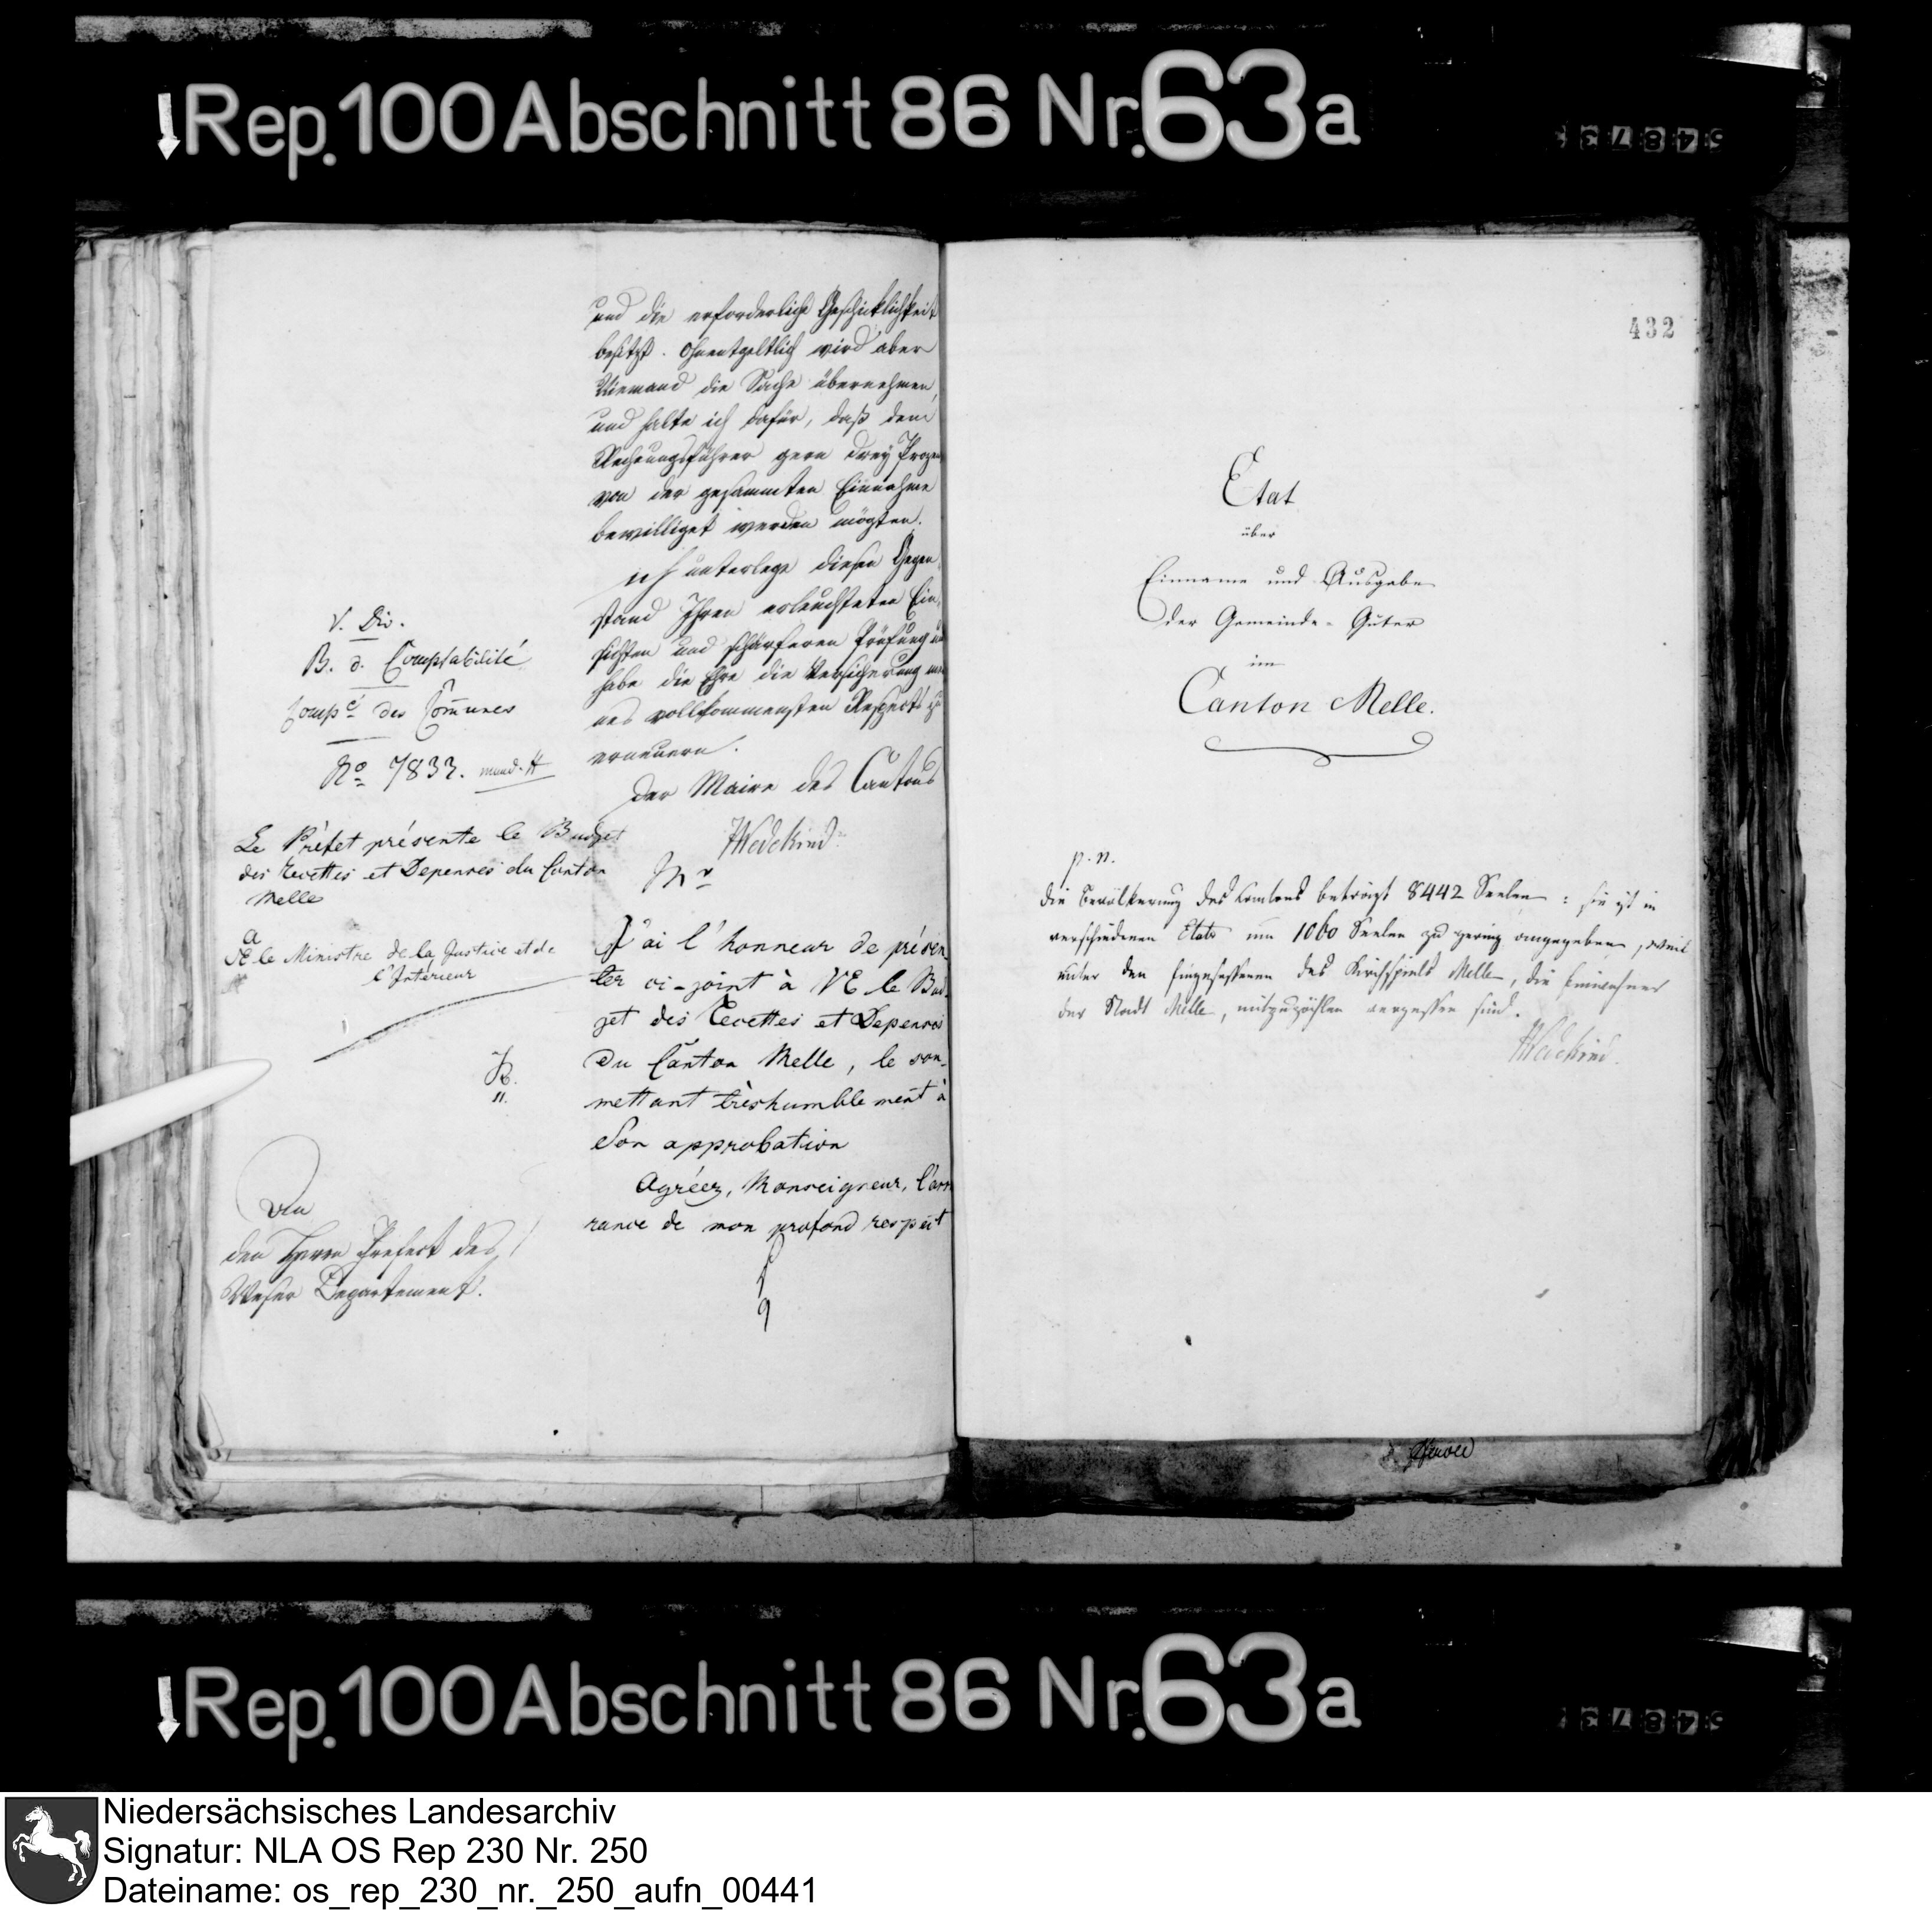 Rep. 100 Abschnitt 86 Nr. 63a
und die erforderliche Geschicklichkeit
besitzt. Ohnentgeltlich wird aber
Niemand die Sache übernehmen,
und halte ich dafür, daß dem
Rechnungsführer gern drey Prozen
von der gesammten Einnahme
bewilliget werden mögten.
ich unterlege diesen Gegen
stand Ihren erleuchteten Ein
sichten und schärferen Prüfung un
habe die Ehre die Versicherung mei
nes vollkommensten Respects zu
erneuern.
Der Maire des Cantons
Wedekind
V. Div.
B. d. Comptabilité
Comp.é des Com̄unes
No 7833. mund. H
Le Préfet présente le Budget
des Recettes et Depenses du Canton
Melle
a
SE le Ministre de la Justice et de
l'Intérieur
Mr
J'ai l'honneur de présen
ter ci-joint à VE le Bud
get des Recettes et Depenses
du Canton Melle, le sou-
mettant trèshumblement à
Son approbation
Agréez, Monseigneur, l'assu
rance de mon profond respect
An
den Herrn Prefect des
Weser Departement.
432
Etat
über
Einname und Ausgabe
der Gemeinde-Güter
im
Canton Melle.
p. n.
die Bevölkerung des Cantons beträgt 8442 Seelen: sie ist in
verschiedenen Etats um 1060 Seelen zu gering angegeben, weil
unter den Eingesessenen des Kirchspiels Melle, die Einwohner
der Stadt Melle, mitzuzählen vergessen sind.
Wedekind.
Rep. 100 Abschnitt 86 Nr. 63a
Niedersächsisches Landesarchiv
Signatur: NLA OS Rep 230 Nr. 250
Dateiname: os_rep_230_nr._250_aufn_00441